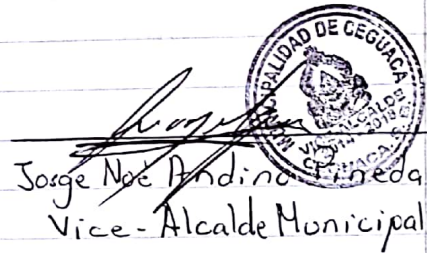 MUNICIPALIDAD DE CEGUACA
VICE-ALCALDE
Jorge Noé Andino Pineda
Vice-Alcalde Municipal